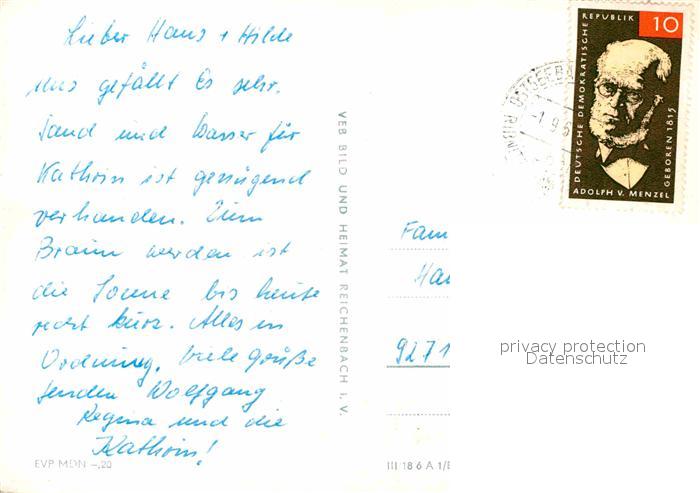 Lieber Hans + Hilde
uns gefällt Es sehr.
Sand und Wasser für
Kathrin ist genügend
verhanden. Zum
Braun werden ist
die Sonne bis heute
recht kurz. Alles in
Ordnung. Viele Grüße
senden Wolfgang
Regina und die
Kathrin!
EVP MDN -,20
VEB BILD UND HEIMAT REICHENBACH I. V.
OSTSEEBA
-1.9.6
DEUTSCHE DEMOKRATISCHE REPUBLIK
10
ADOLPH V. MENZEL
GEBOREN 1815
Fam
Han
9271
III 18 6 A 1/
privacy protection
Datenschutz